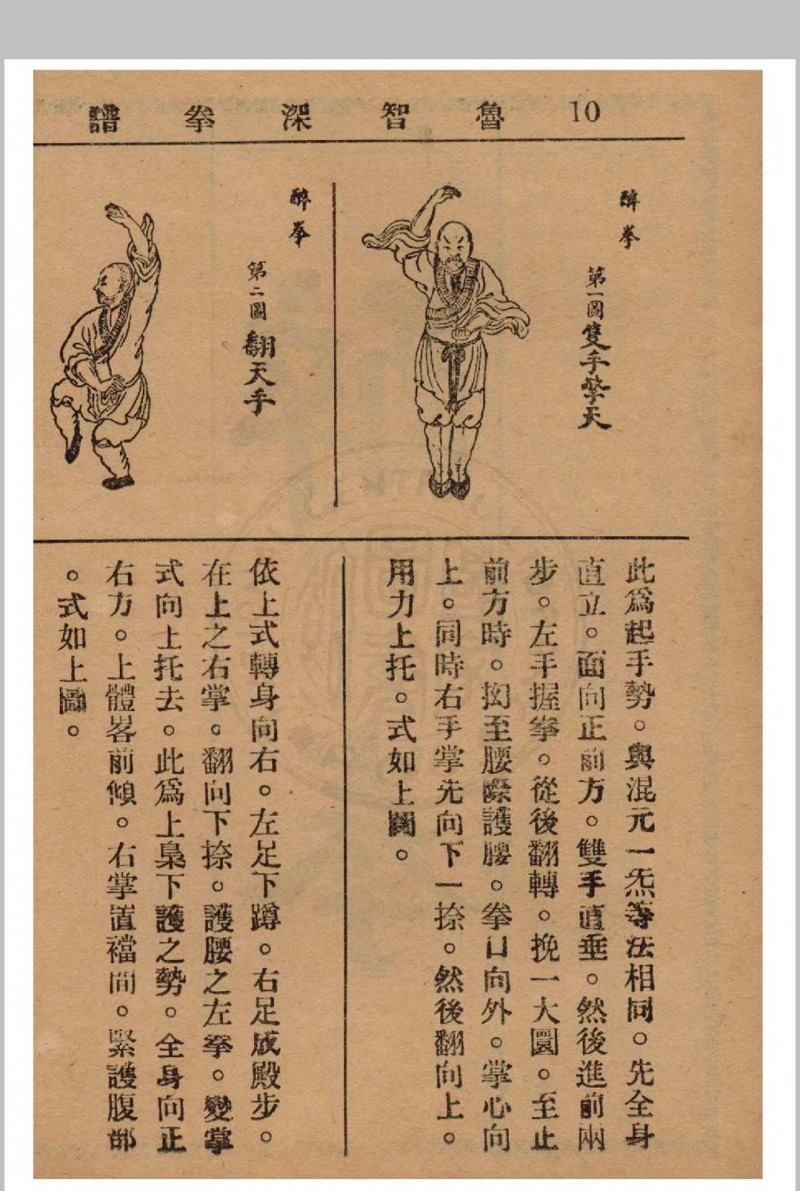 10 魯智深拳譜
醉拳
第一圖 雙手擎天
此爲起手勢。與混元一炁等法相同。先全身
直立。面向正前方。雙手直垂。然後進前兩
步。左手握拳。從後翻轉。挽一大圜。至止
前方時。抝至腰際護腰。拳口向外。掌心向
上。同時右手掌先向下一捺。然後翻向上。
用力上托。式如上圖。
醉拳
第二圖 翻天手
依上式轉身向右。左足下蹲。右足成殿步。
在上之右掌。翻向下捺。護腰之左拳。變掌
式向上托去。此爲上梟下護之勢。全身向正
右方。上體畧前傾。右掌置襠間。緊護腹部
。式如上圖。